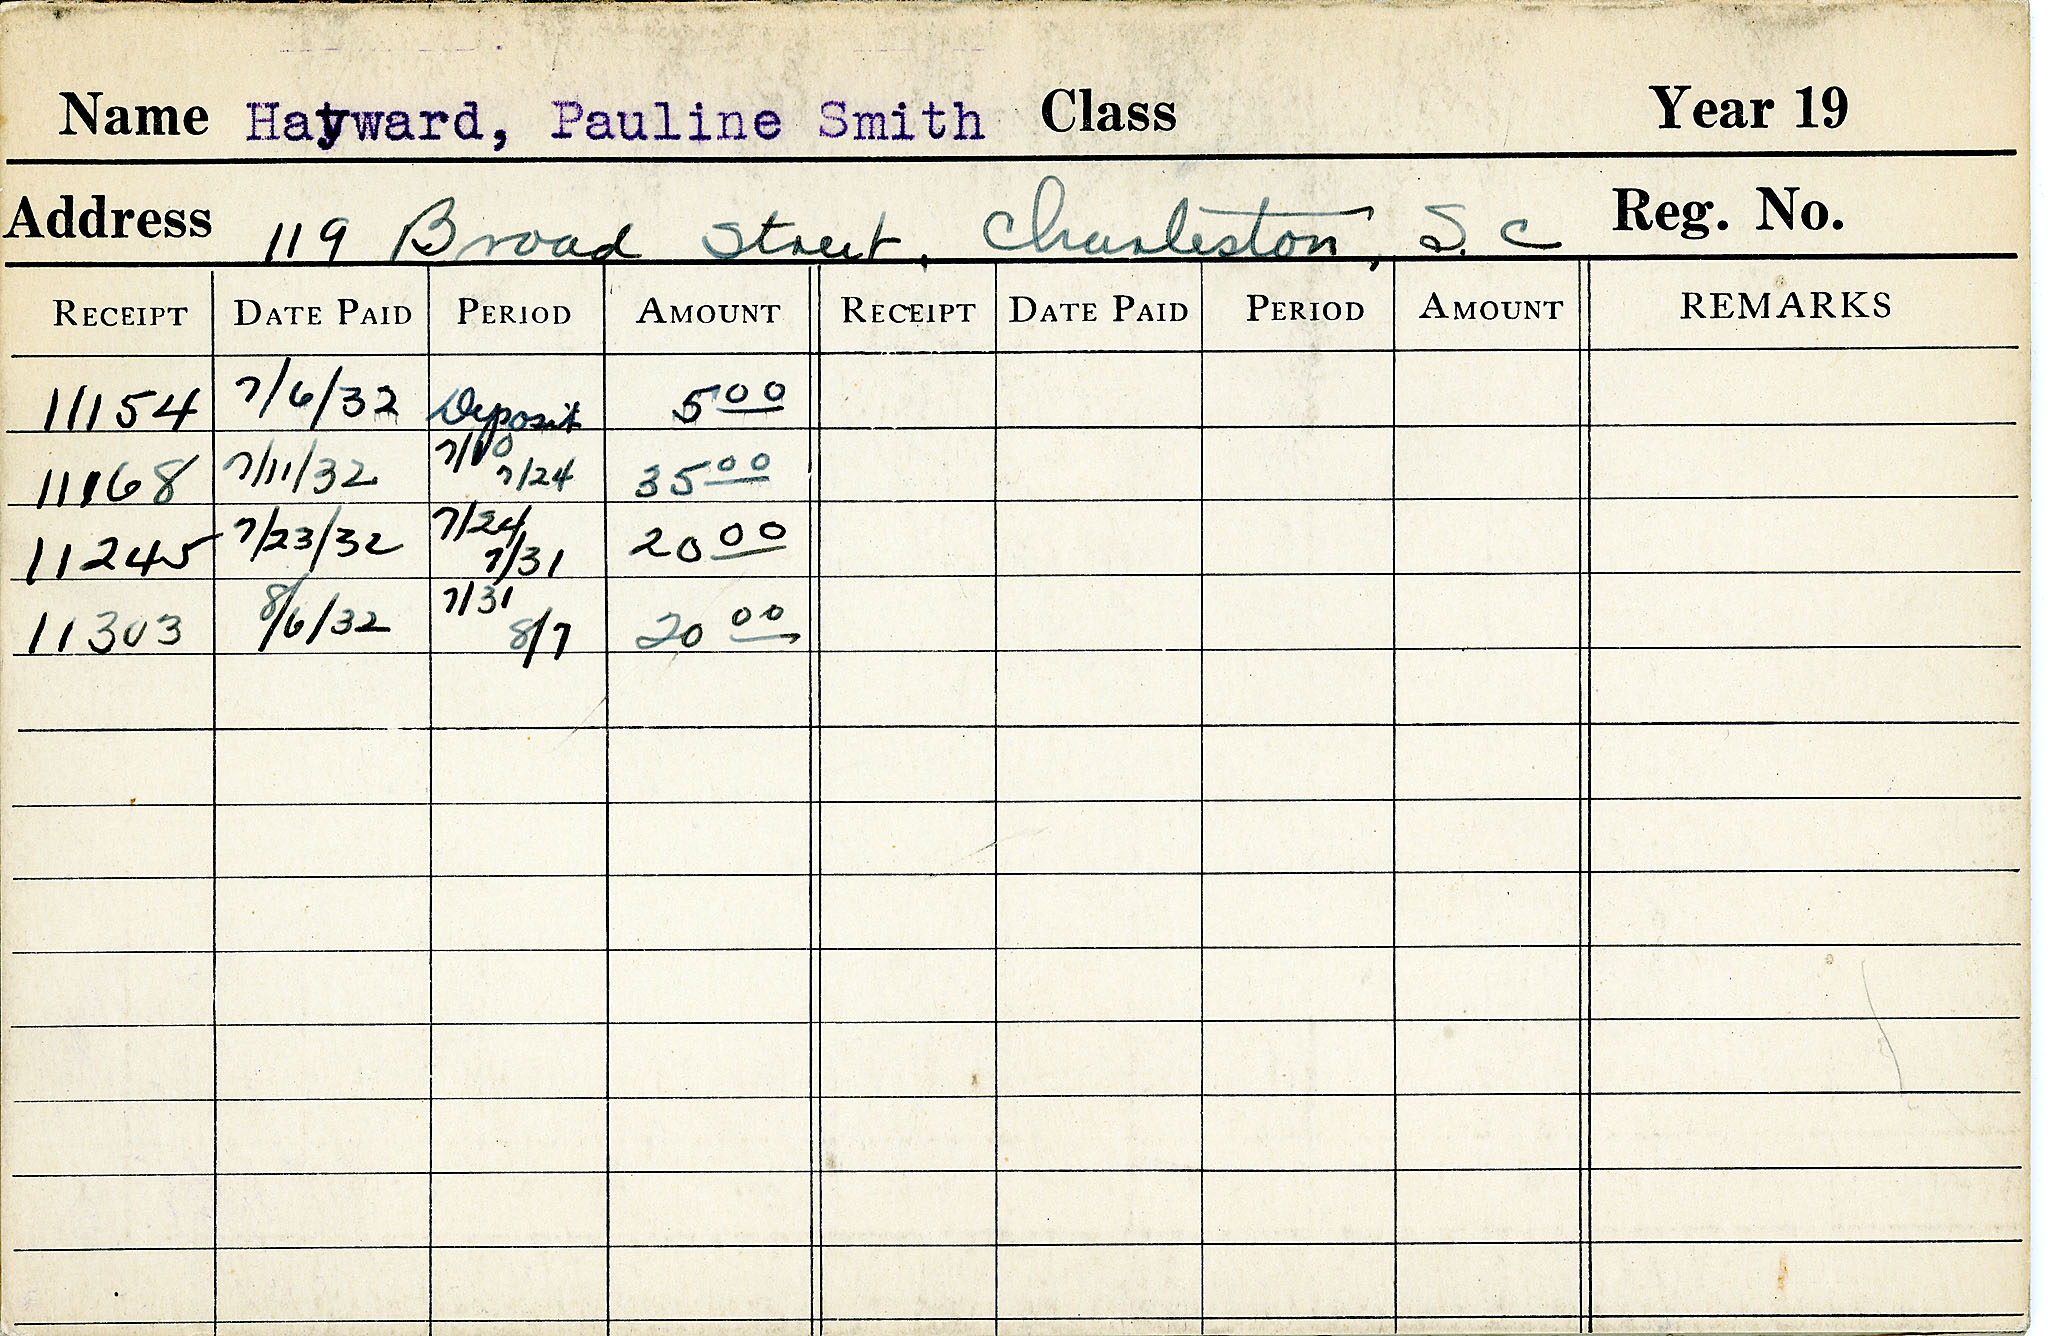 Name Hayward, Pauline Smith Class Year 19
Address 119 Broad Street, Charleston, S. C Reg. No.
RECEIPT DATE PAID PERIOD AMOUNT RECEIPT DATE PAID PERIOD AMOUNT REMARKS
11154 7/6/32 Deposit 5 00
11168 7/11/32 7/10 7/24 35 00
11245 7/23/32 7/24 7/31 20 00
11303 8/6/32 7/31 8/7 20 00